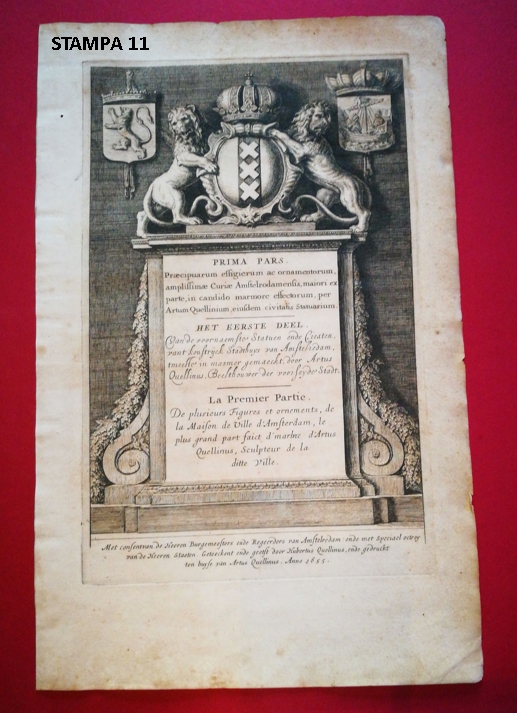 STAMPA 11
PRIMA PARS.
Præcipuarum effigierum ac ornamentorum,
amplissimæ Curiæ Amstelrodamensis, maiori ex
parte, in candido marmore effectorum, per
Artum Quellinium, eiusdem civitatis Statuarium.
HET EERSTE DEEL.
Van de voornaemste Statuen ende Cieraten,
vant konstrijck Stadthuys van Amstelredam,
tmeeste in marmer gemaeckt, door Artus
Quellinus, Beelthouwer der voorseyde Stadt.
La Premier Partie.
De plusieurs Figures et ornements, de
la Maison de Ville d'Amsterdam, le
plus grand part faict d'marbre d'Artus
Quellinus, Sculpteur de la
ditte Ville.
Met consent van de Heeren Burgemeesters ende Regeerders van Amstelredam ende met Speciael octroy
van de Heeren Staeten. Geteeckent ende geëtst door Hubertus Quellinus, ende gedruckt
ten huyse van Artus Quellinus. Anno 1655.